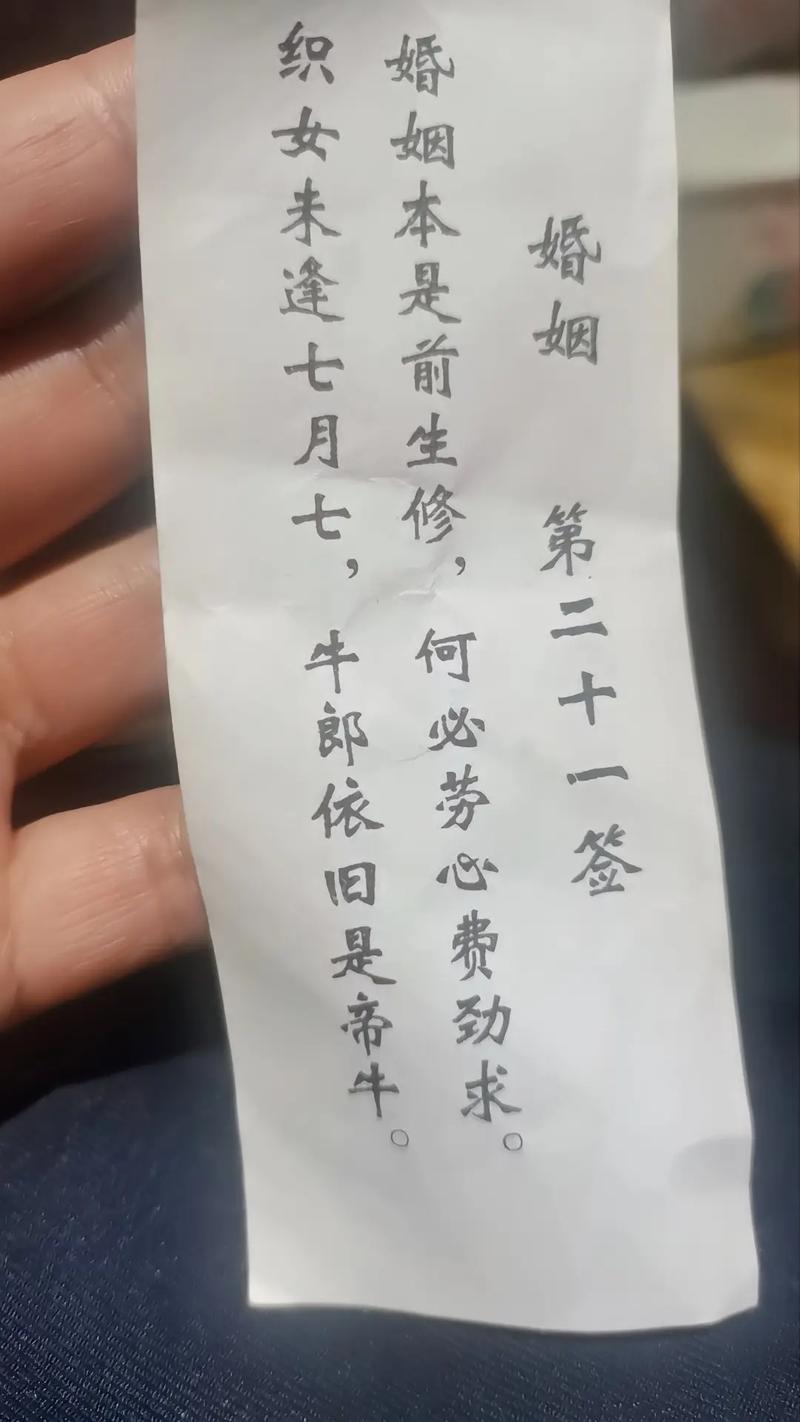 婚姻 第二十一签
婚姻本是前生修，何必劳心费劲求。
织女未逢七月七，牛郎依旧是帝牛。